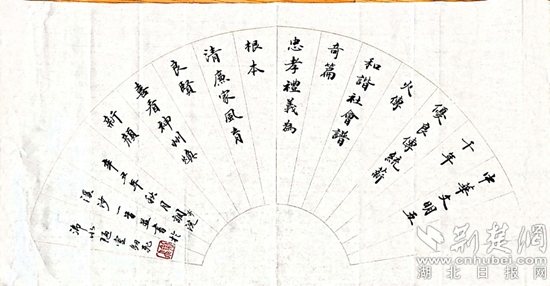 中華文明五
千年
優良傳統薪
火傳
和諧社會譜
奇篇
忠孝禮義為
根本
清廉家風育
良賢
喜看神州煥
新顏
辛丑年秋月
荆楚网
www.cnhubei.com
湖北日报网